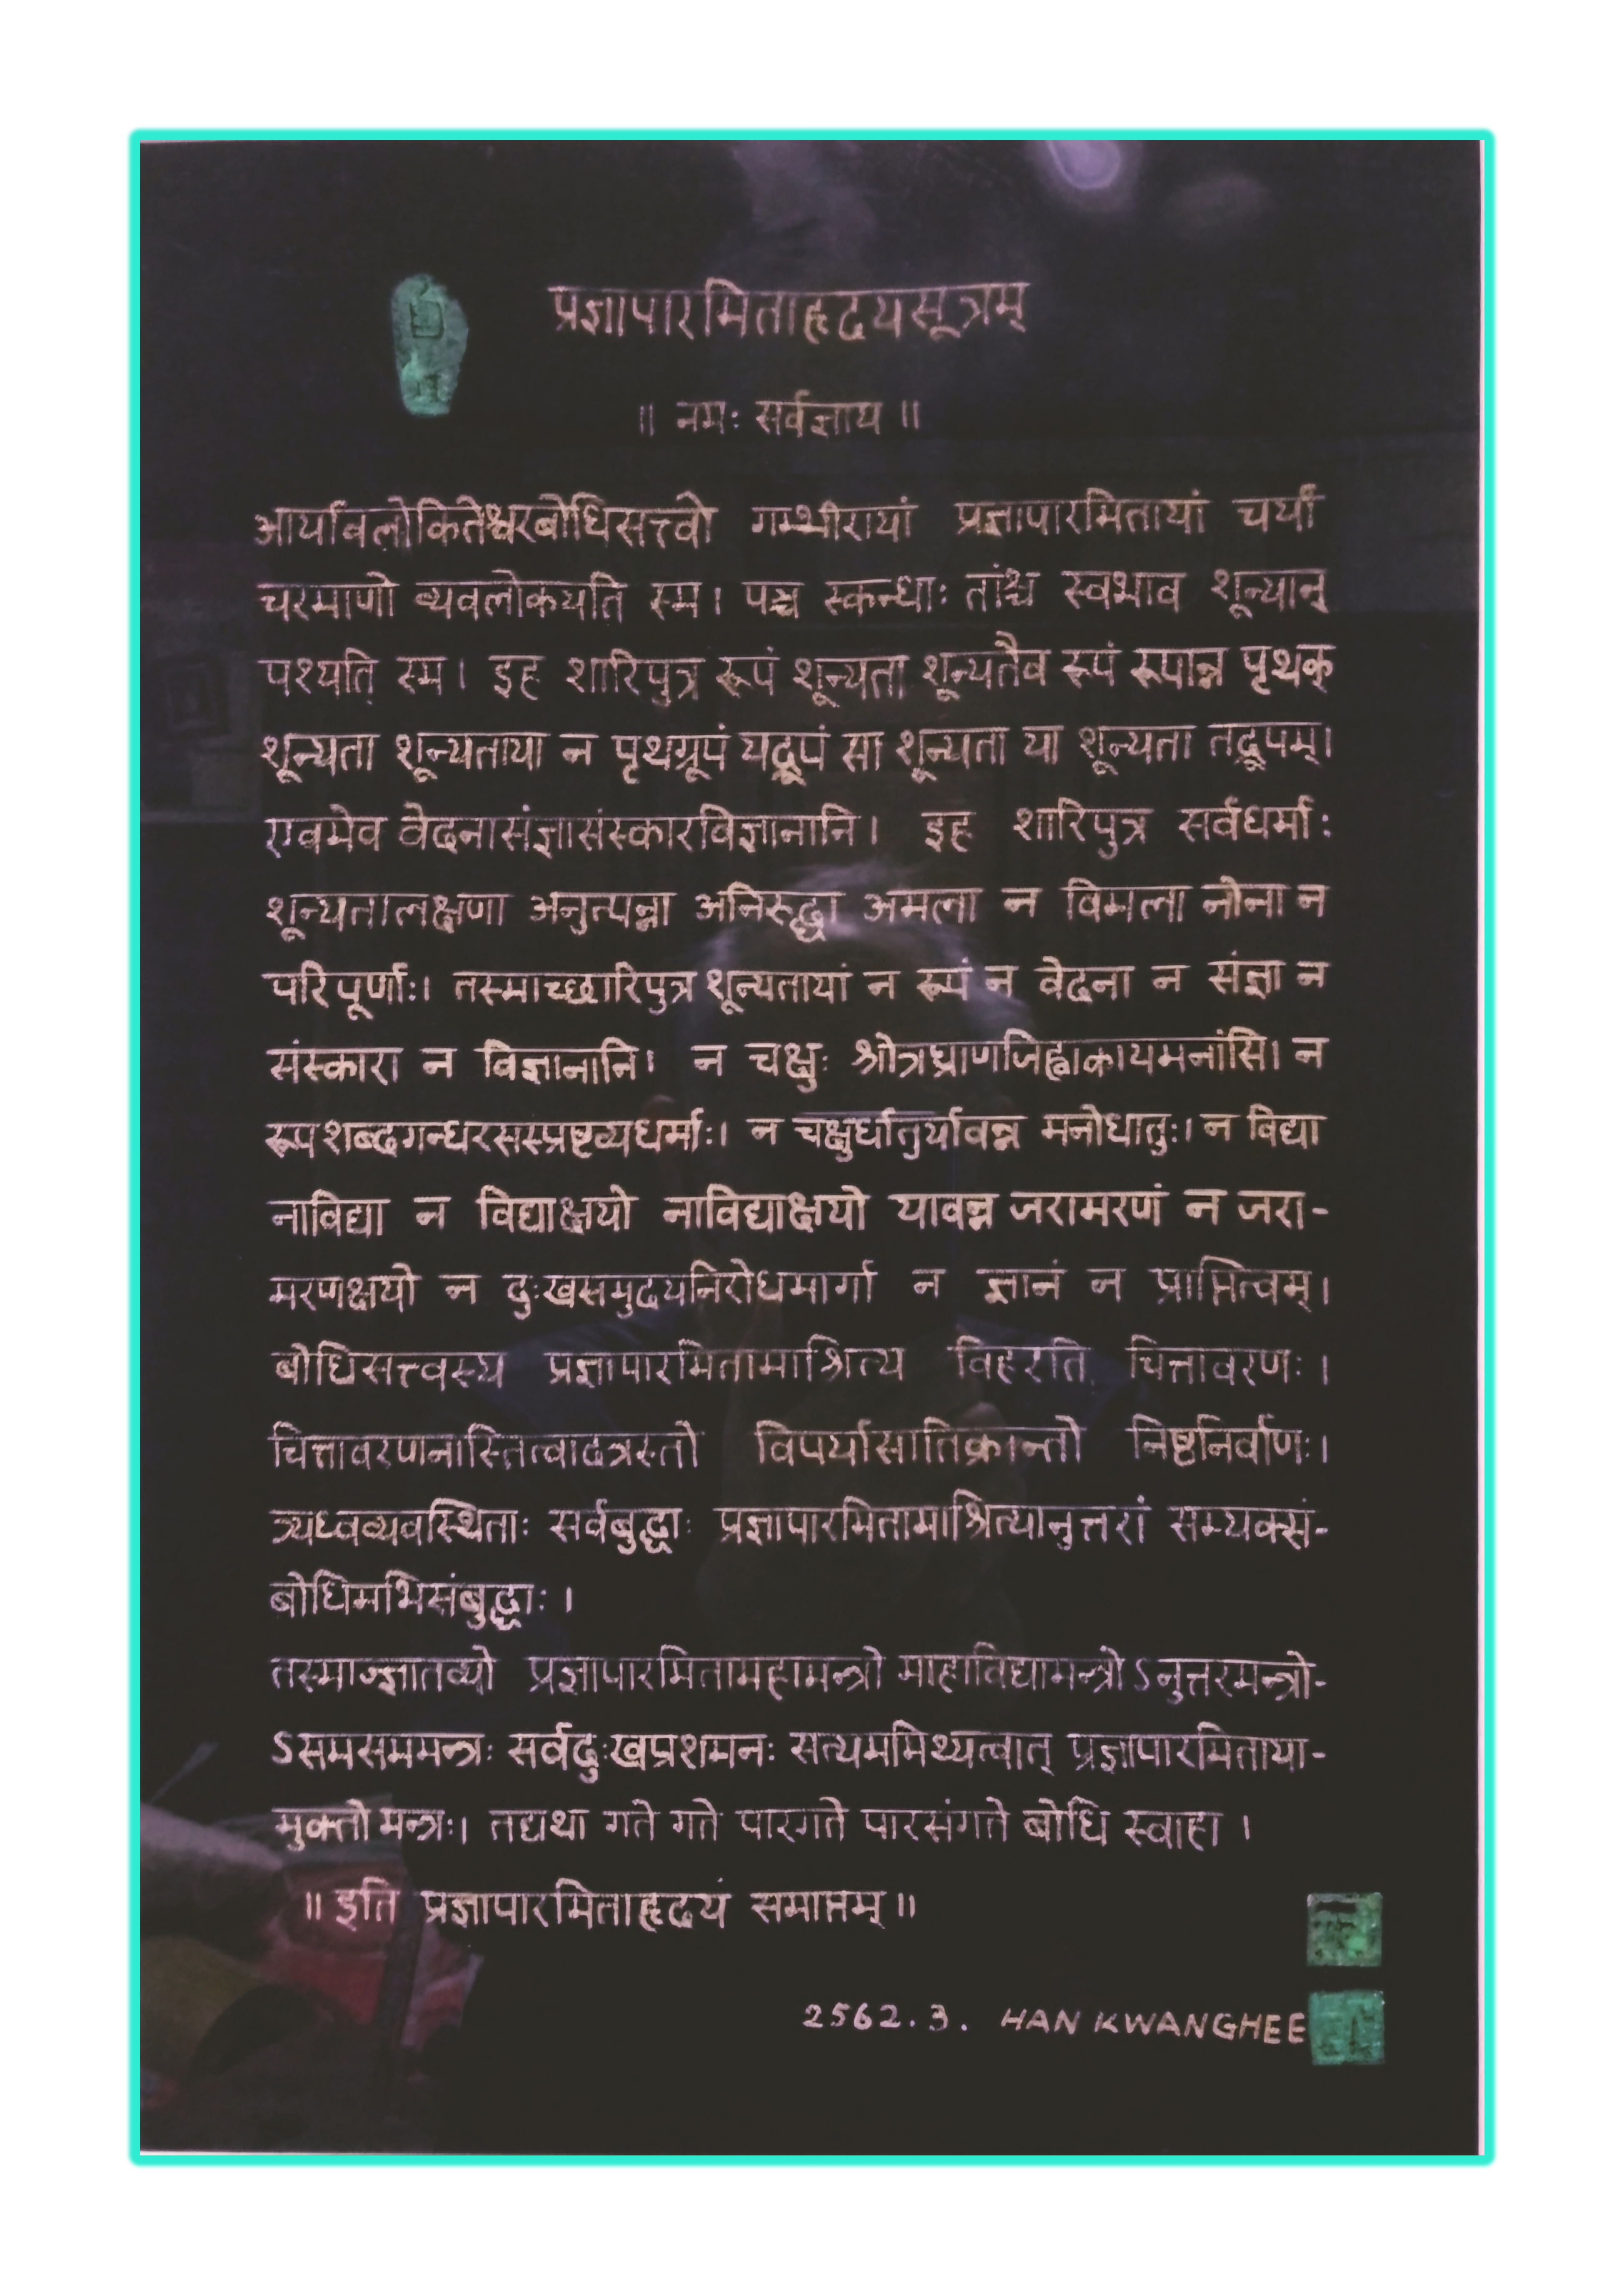 प्रज्ञापारमिताहृदयसूत्रम्
॥ नमः सर्वज्ञाय ॥
आर्यावलोकितेश्वरबोधिसत्त्वो गम्भीरायां प्रज्ञापारमितायां चर्यां
चरमाणो व्यवलोकयति स्म। पञ्च स्कन्धाः तांश्च स्वभाव शून्यान्
पश्यति स्म। इह शारिपुत्र रूपं शून्यता शून्यतैव रूपं रूपान्न पृथक्
शून्यता शून्यताया न पृथग्रूपं यद्रूपं सा शून्यता या शून्यता तद्रूपम्।
एवमेव वेदनासंज्ञासंस्कारविज्ञानानि। इह शारिपुत्र सर्वधर्माः
शून्यतालक्षणा अनुत्पन्ना अनिरुद्धा अमला न विमला नोना न
परिपूर्णाः। तस्माच्छारिपुत्र शून्यतायां न रूपं न वेदना न संज्ञा न
संस्कारा न विज्ञानानि। न चक्षुः श्रोत्रघ्राणजिह्वाकायमनांसि। न
रूपशब्दगन्धरसस्प्रष्टव्यधर्माः। न चक्षुर्धातुर्यावन्न मनोधातुः। न विद्या
नाविद्या न विद्याक्षयो नाविद्याक्षयो यावन्न जरामरणं न जरा-
मरणक्षयो न दुःखसमुदयनिरोधमार्गा न ज्ञानं न प्राप्तित्वम्।
बोधिसत्त्वस्य प्रज्ञापारमितामाश्रित्य विहरति चित्तावरणः।
चित्तावरणनास्तित्वादत्रस्तो विपर्यासातिक्रान्तो निष्टनिर्वाणः।
त्र्यध्वव्यवस्थिताः सर्वबुद्धाः प्रज्ञापारमितामाश्रित्यानुत्तरां सम्यक्सं-
बोधिमभिसंबुद्धाः।
तस्माज्ज्ञातव्यो प्रज्ञापारमितामहामन्त्रो माहाविद्यामन्त्रो ऽनुत्तरमन्त्रो-
ऽसमसममन्त्रः सर्वदुःखप्रशमनः सत्यममिथ्यत्वात् प्रज्ञापारमिताया-
मुक्तो मन्त्रः। तद्यथा गते गते पारगते पारसंगते बोधि स्वाहा।
॥ इति प्रज्ञापारमिताहृदयं समाप्तम् ॥
2562.3. HAN KWANGHEE